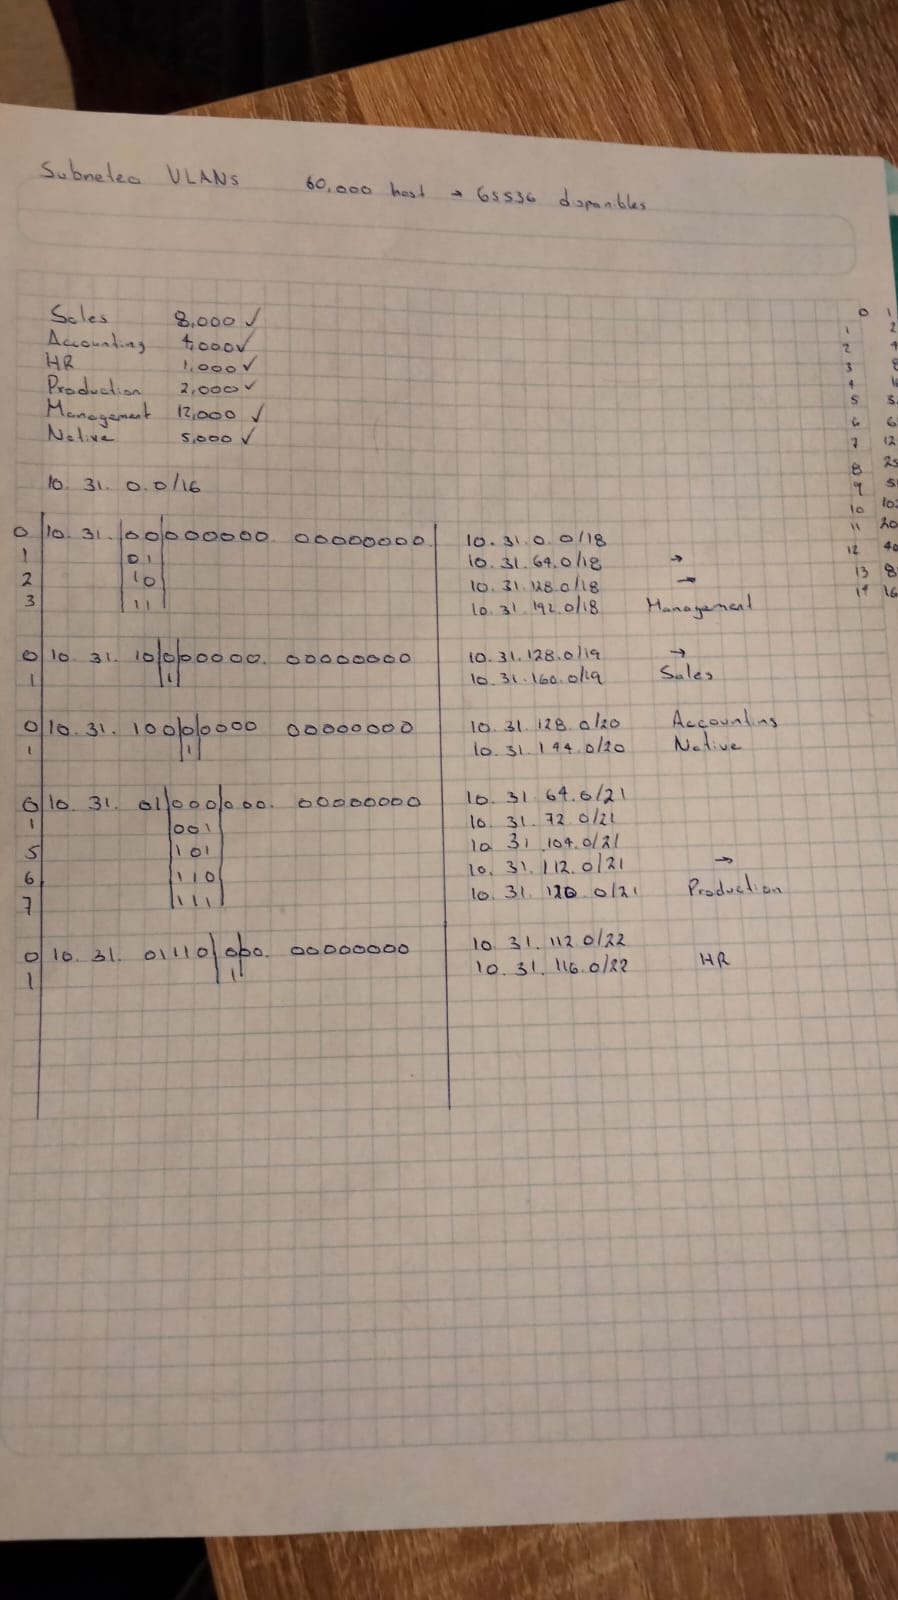 Subneteo VLANs 60,000 host → 65536 disponibles
Sales 8,000 ✓
Accounting 4,000 ✓
HR 1,000 ✓
Production 2,000 ✓
Management 12,000 ✓
Native 5,000 ✓
10. 31. 0.0/16
0 10. 31. 00000000 00000000 10. 31. 0. 0/18
1 01 10. 31. 64. 0/18 →
2 10 10. 31. 128. 0/18 →
3 11 10. 31. 192. 0/18 Management
0 10. 31. 10000000. 00000000 10. 31. 128. 0/19 →
1 1 10. 31. 160. 0/19 Sales
0 10. 31. 10000000 00000000 10. 31. 128. 0/20 Accounting
1 1 10. 31. 144. 0/20 Native
0 10. 31. 01000000. 00000000 10. 31. 64. 0/21
1 001 10. 31. 72. 0/21
5 101 10. 31. 104. 0/21
6 110 10. 31. 112. 0/21 →
7 111 10. 31. 120. 0/21 Production
0 10. 31. 01110000. 00000000 10. 31. 112. 0/22
1 1 10. 31. 116. 0/22 HR
0 1
1 2
2 4
3 8
4
5
6 6
7 12
8 25
9 5
10 10
11 20
12 40
13 8
14 16